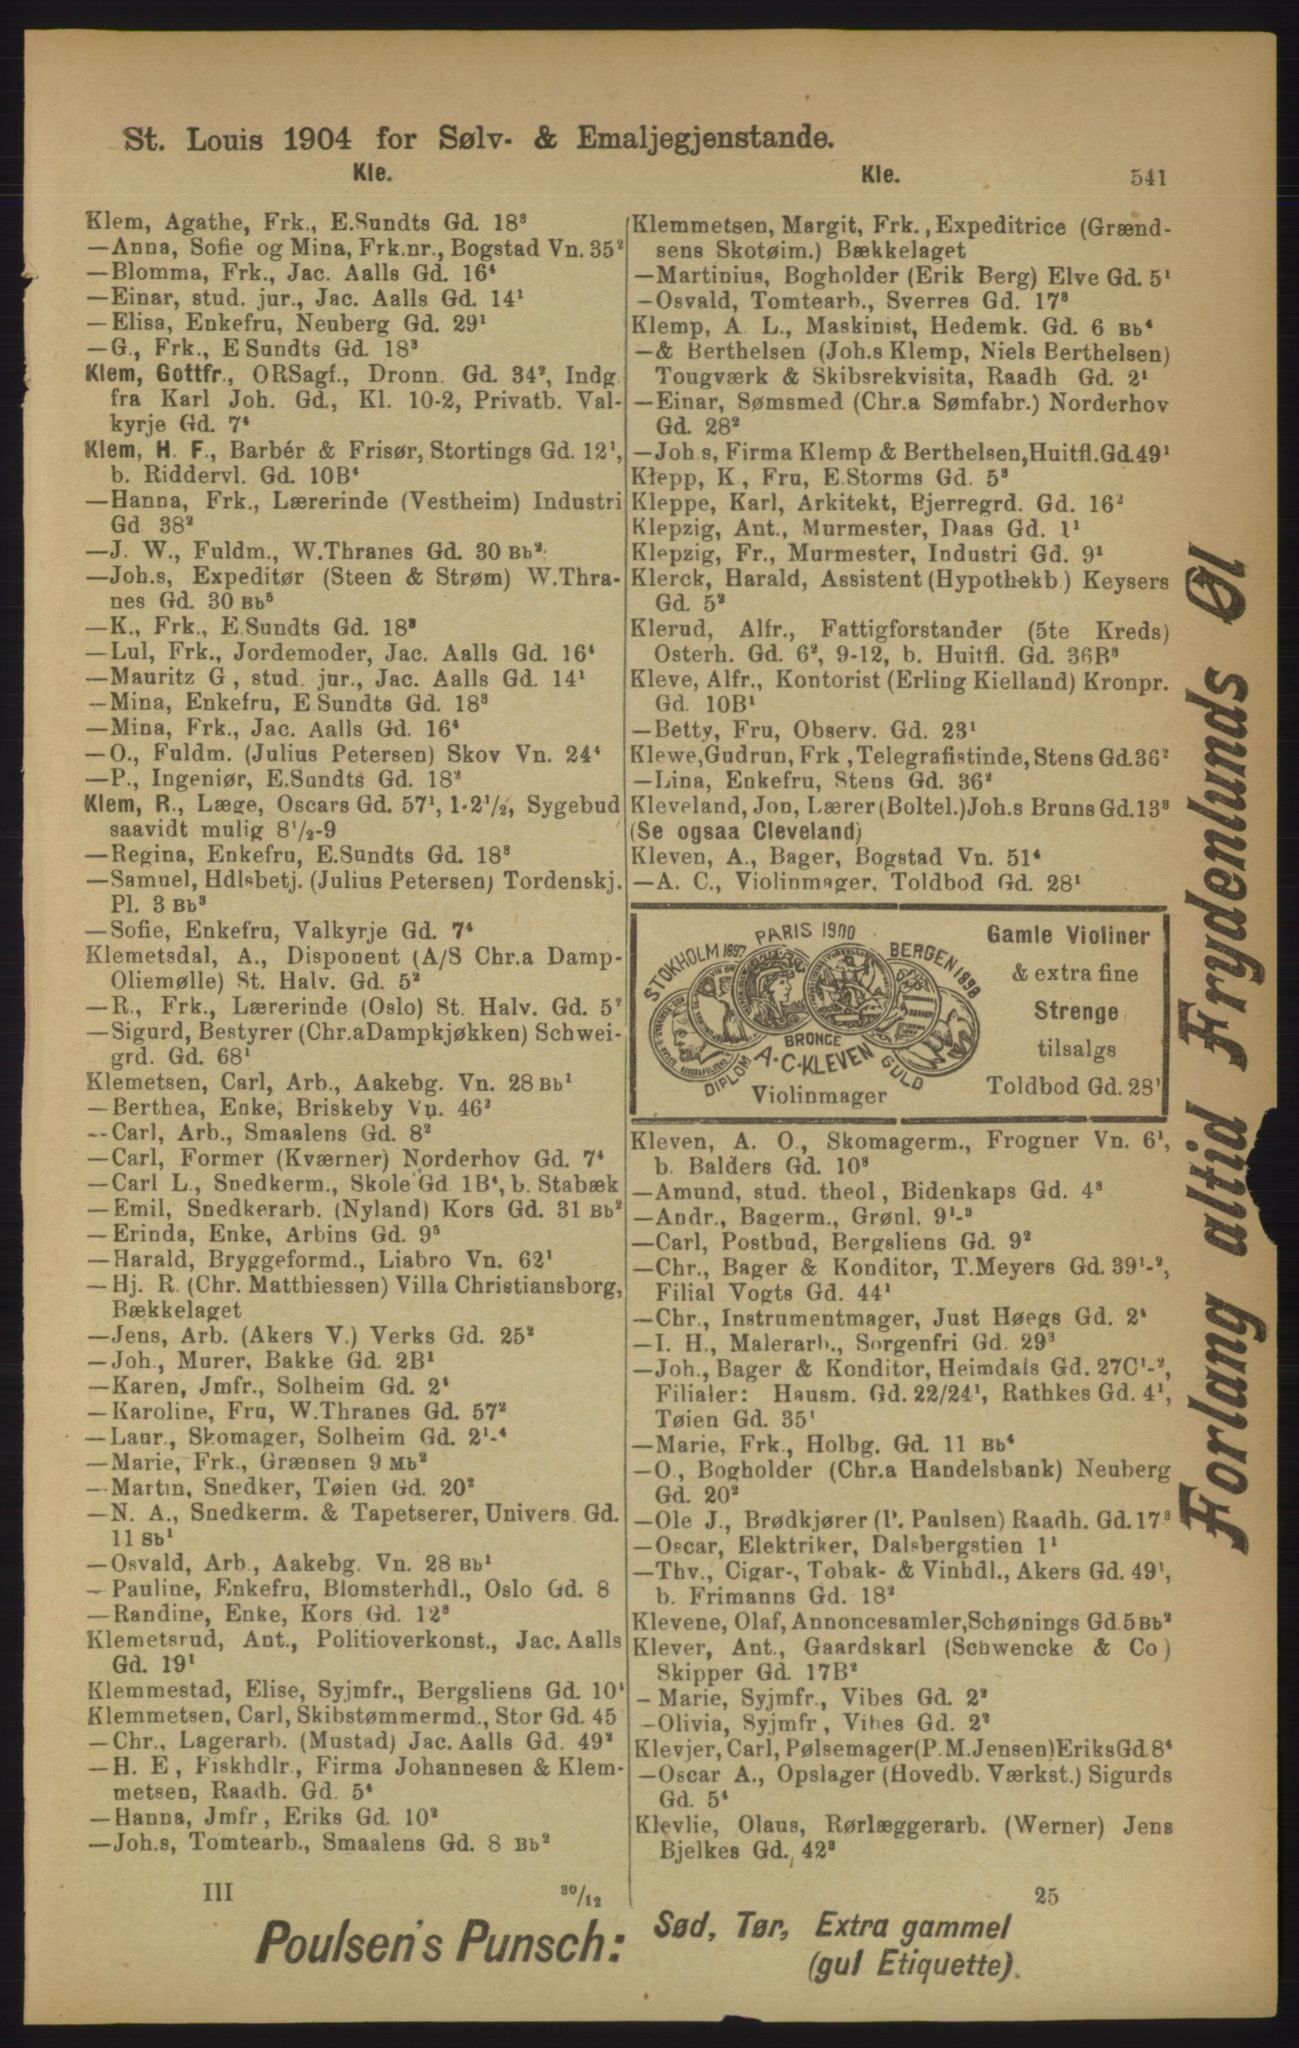 St. Louis 1904 for Sølv- & Emaljegjenstande.
Kle.
Kle.
541
Klem, Agathe, Frk., E.Sundts Gd. 18³
—Anna, Sofie og Mina, Frk.nr., Bogstad Vn. 35²
—Blomma, Frk., Jac. Aalls Gd. 16⁴
—Einar, stud. jur., Jac. Aalls Gd. 14¹
—Elisa, Enkefru, Neuberg Gd. 29¹
—G., Frk., E Sundts Gd. 18³
Klem, Gottfr., ORSagf., Dronn. Gd. 34², Indg.
fra Karl Joh. Gd., Kl. 10-2, Privatb. Val-
kyrje Gd. 7⁴
Klem, H. F., Barbér & Frisør, Stortings Gd. 12¹,
b. Riddervl. Gd. 10B⁴
—Hanna, Frk., Lærerinde (Vestheim) Industri
Gd 38²
—J. W., Fuldm., W.Thranes Gd. 30 Bb²
—Joh.s, Expeditør (Steen & Strøm) W.Thra-
nes Gd. 30 Bb⁵
—K., Frk., E.Sundts Gd. 18³
—Lul, Frk., Jordemoder, Jac. Aalls Gd. 16⁴
—Mauritz G , stud. jur., Jac. Aalls Gd. 14¹
—Mina, Enkefru, E Sundts Gd. 18³
—Mina, Frk., Jac. Aalls Gd. 16⁴
—O., Fuldm. (Julius Petersen) Skov Vn. 24⁴
—P., Ingeniør, E.Sundts Gd. 18³
Klem, R., Læge, Oscars Gd. 57¹, 1-2¹/₂, Sygebud
saavidt mulig 8¹/₂-9
—Regina, Enkefru, E.Sundts Gd. 18³
—Samuel, Hdlsbetj. (Julius Petersen) Tordenskj.
Pl. 3 Bb³
—Sofie, Enkefru, Valkyrje Gd. 7⁴
Klemetsdal, A., Disponent (A/S Chr.a Damp-
Oliemølle) St. Halv. Gd. 5²
—R., Frk., Lærerinde (Oslo) St. Halv. Gd. 5²
—Sigurd, Bestyrer (Chr.aDampkjøkken) Schwei-
grd. Gd. 68¹
Klemetsen, Carl, Arb., Aakebg. Vn. 28 Bb¹
—Berthea, Enke, Briskeby Vn. 46³
—Carl, Arb., Smaalens Gd. 8²
—Carl, Former (Kværner) Norderhov Gd. 7⁴
—Carl L., Snedkerm., Skole Gd 1B⁴, b. Stabæk
—Emil, Snedkerarb. (Nyland) Kors Gd. 31 Bb²
—Erinda, Enke, Arbins Gd. 9⁵
—Harald, Bryggeformd., Liabro Vn. 62¹
—Hj. R. (Chr. Matthiessen) Villa Christiansborg,
Bækkelaget
—Jens, Arb. (Akers V.) Verks Gd. 25²
—Joh., Murer, Bakke Gd. 2B¹
—Karen, Jmfr., Solheim Gd. 2⁴
—Karoline, Fru, W.Thranes Gd. 57²
—Laur., Skomager, Solheim Gd. 2¹-⁴
—Marie, Frk., Grænsen 9 Mb²
—Martin, Snedker, Tøien Gd. 20²
—N. A., Snedkerm. & Tapetserer, Univers. Gd.
11 Sb¹
—Osvald, Arb., Aakebg. Vn. 28 Bb¹
—Pauline, Enkefru, Blomsterhdl., Oslo Gd. 8
—Randine, Enke, Kors Gd. 12³
Klemetsrud, Ant., Politioverkonst., Jac. Aalls
Gd. 19¹
Klemmestad, Elise, Syjmfr., Bergsliens Gd. 10¹
Klemmetsen, Carl, Skibstømmermd., Stor Gd. 45
—Chr., Lagerarb. (Mustad) Jac. Aalls Gd. 49²
—H. E , Fiskhdlr., Firma Johannesen & Klem-
metsen, Raadh. Gd. 5⁴
—Hanna, Jmfr., Eriks Gd. 10²
—Joh.s, Tomtearb., Smaalens Gd. 8 Bb²
Klemmetsen, Margit, Frk., Expeditrice (Grænd-
sens Skotøim.) Bækkelaget
—Martinius, Bogholder (Erik Berg) Elve Gd. 5¹
—Osvald, Tomtearb., Sverres Gd. 17³
Klemp, A. L., Maskinist, Hedemk. Gd. 6 Bb⁴
—& Berthelsen (Joh.s Klemp, Niels Berthelsen)
Tougværk & Skibsrekvisita, Raadh Gd. 2¹
—Einar, Sømsmed (Chr.a Sømfabr.) Norderhov
Gd. 28²
—Joh.s, Firma Klemp & Berthelsen,Huitfl.Gd.49¹
Klepp, K , Fru, E.Storms Gd. 5³
Kleppe, Karl, Arkitekt, Bjerregrd. Gd. 16²
Klepzig, Ant., Murmester, Daas Gd. 1¹
Klepzig, Fr., Murmester, Industri Gd. 9¹
Klerck, Harald, Assistent (Hypothekb.) Keysers
Gd. 5²
Klerud, Alfr., Fattigforstander (5te Kreds)
Osterh. Gd. 6², 9-12, b. Huitfl. Gd. 36B³
Kleve, Alfr., Kontorist (Erling Kielland) Kronpr.
Gd. 10B¹
—Betty, Fru, Observ. Gd. 23¹
Klewe, Gudrun, Frk , Telegrafistinde, Stens Gd.36²
—Lina, Enkefru, Stens Gd. 36²
Kleveland, Jon, Lærer (Boltel.) Joh.s Bruns Gd.13³
(Se ogsaa Cleveland)
Kleven, A., Bager, Bogstad Vn. 51⁴
—A. C., Violinmager, Toldbod Gd. 28¹
STOKHOLM 1897
PARIS 1900
BERGEN 1898
DIPLOM
BRONCE
GULD
A·C·KLEVEN
Violinmager
Gamle Violiner
& extra fine
Strenge
tilsalgs
Toldbod Gd. 28¹
Kleven, A. O., Skomagerm., Frogner Vn. 6¹,
b. Balders Gd. 10³
—Amund, stud. theol , Bidenkaps Gd. 4³
—Andr., Bagerm., Grønl. 9¹-³
—Carl, Postbud, Bergsliens Gd. 9²
—Chr., Bager & Konditor, T.Meyers Gd. 39¹-²,
Filial Vogts Gd. 44¹
—Chr., Instrumentmager, Just Høegs Gd. 2⁴
—I. H., Malerarb., Sorgenfri Gd. 29³
—Joh., Bager & Konditor, Heimdals Gd. 27C¹-²,
Filialer: Hausm. Gd. 22/24¹, Rathkes Gd. 4¹,
Tøien Gd. 35¹
—Marie, Frk., Holbg. Gd. 11 Bb⁴
—O., Bogholder (Chr.a Handelsbank) Neuberg
Gd. 20²
—Ole J., Brødkjører (P. Paulsen) Raadh. Gd. 17³
—Oscar, Elektriker, Dalsbergstien 1¹
—Thv., Cigar-, Tobak- & Vinhdl., Akers Gd. 49¹,
b. Frimanns Gd. 18²
Klevene, Olaf, Annoncesamler, Schønings Gd 5 Bb²
Klever, Ant., Gaardskarl (Schwencke & Co )
Skipper Gd. 17B²
—Marie, Syjmfr., Vibes Gd. 2²
—Olivia, Syjmfr , Vibes Gd. 2²
Klevjer, Carl, Pølsemager (P.M.Jensen) Eriks Gd.8⁴
—Oscar A., Opslager (Hovedb. Værkst.) Sigurds
Gd. 5⁴
Klevlie, Olaus, Rørlæggerarb. (Werner) Jens
Bjelkes Gd. 42³
III
³⁰/₁₂
25
Poulsen's Punsch:
Sød, Tør, Extra gammel
(gul Etiquette).
Forlang altid Frydenlunds Øl